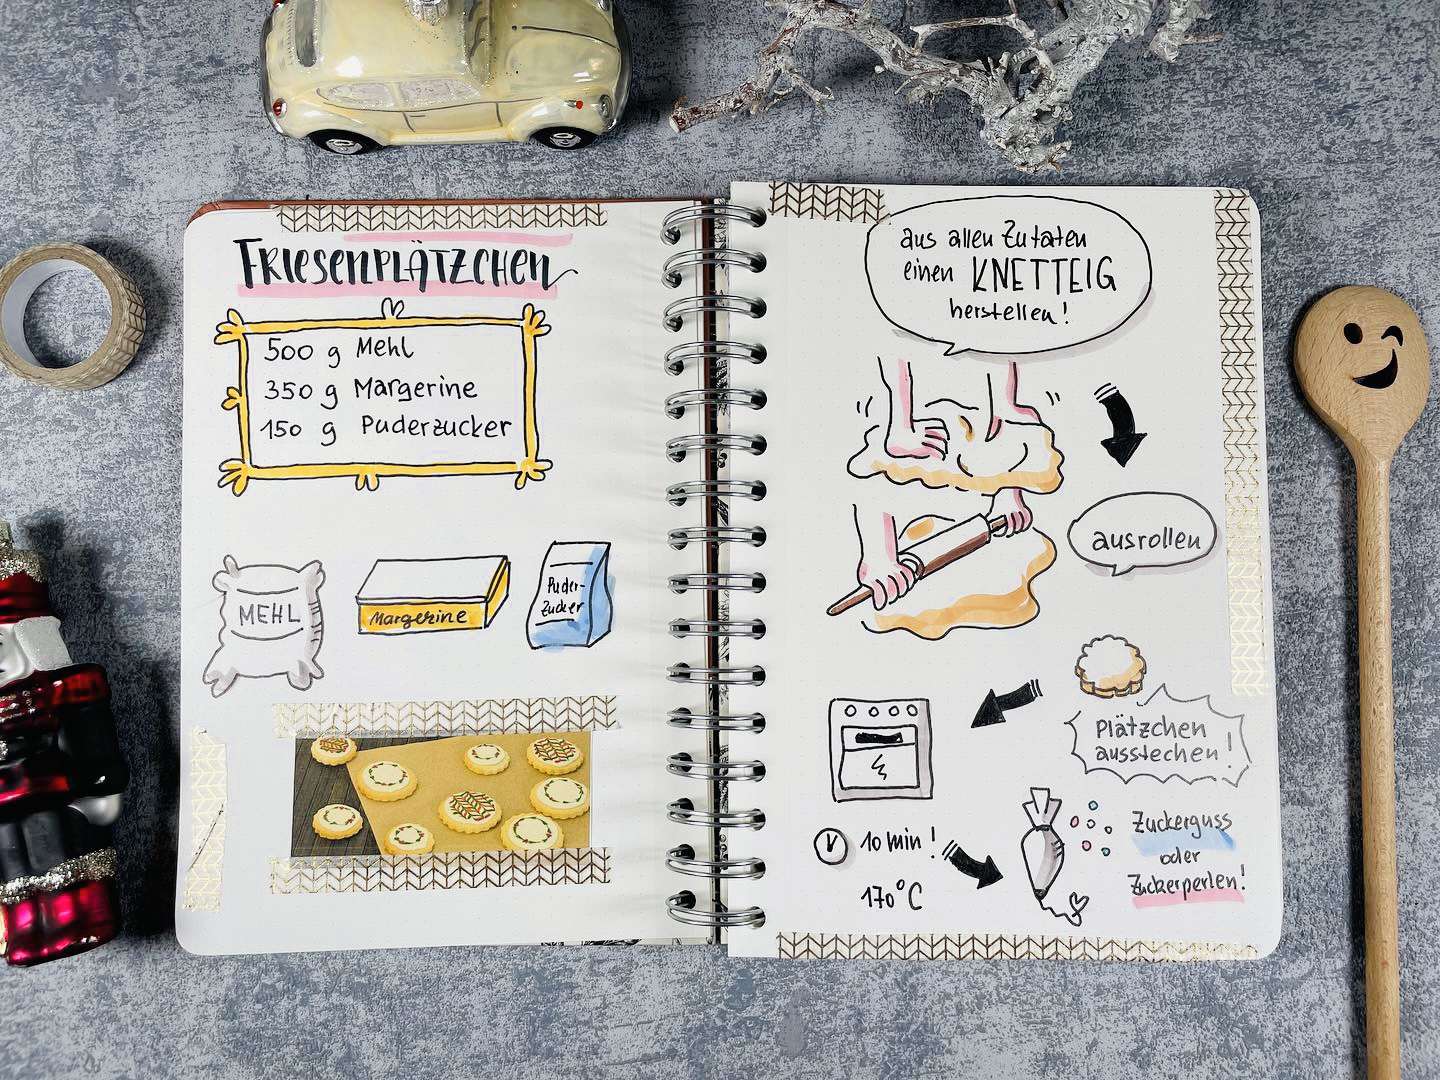 FRIESENPLÄTZCHEN
500 g Mehl
350 g Margerine
150 g Puderzucker
MEHL
Margerine
Puder-
Zucker
aus allen Zutaten
einen KNETTEIG
herstellen!
ausrollen
Plätzchen
ausstechen!
10 min!
170°C
Zuckerguss
oder
Zuckerperlen!